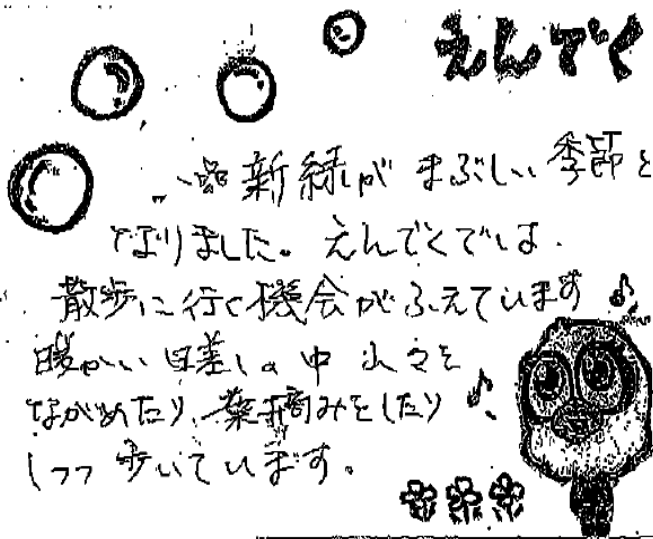 えんでく
新緑がまぶしい季節と
なりました。えんでくでは、
散歩に行く機会がふえています
暖かい日差しの中 山々を
ながめたり、葉摘みをしたり
しつつ歩いています。